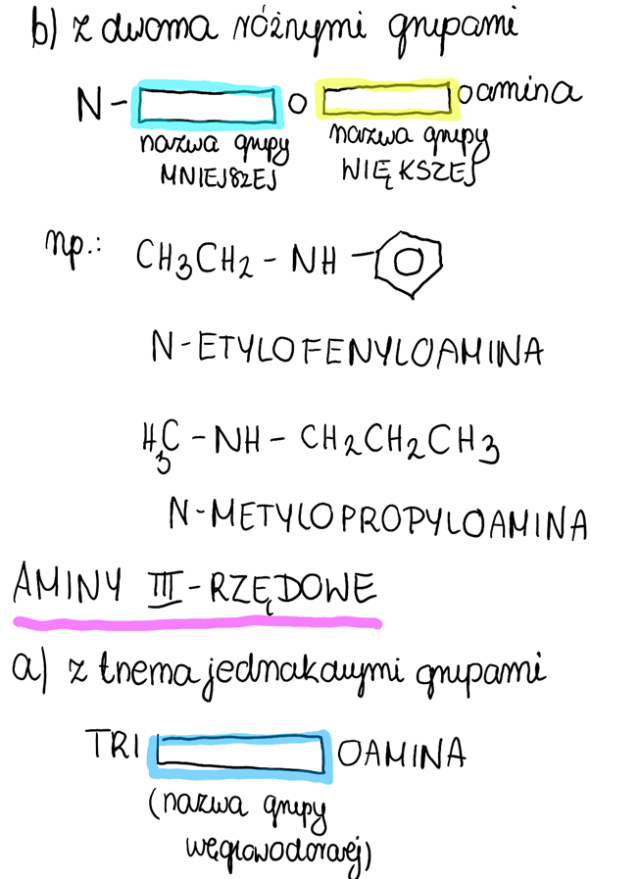 b) z dwoma różnymi grupami
N- o oamina
nazwa grupy nazwa grupy
MNIEJSZEJ WIĘKSZEJ
np.: CH3CH2 - NH -
N-ETYLOFENYLOAMINA
H3C - NH - CH2CH2CH3
N-METYLOPROPYLOAMINA
AMINY III-RZĘDOWE
a) z trzema jednakowymi grupami
TRI OAMINA
(nazwa grupy
węglowodorowej)